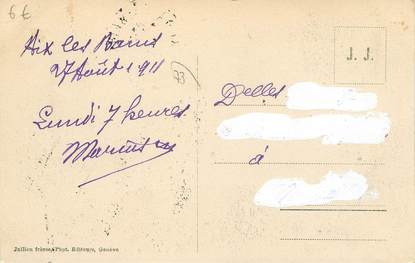 6€
Aix les Bains
27 Août 1911
Lundi 7 heures
J. J.
Delles
à
Jullien frères, Phot. Editeurs, Genève